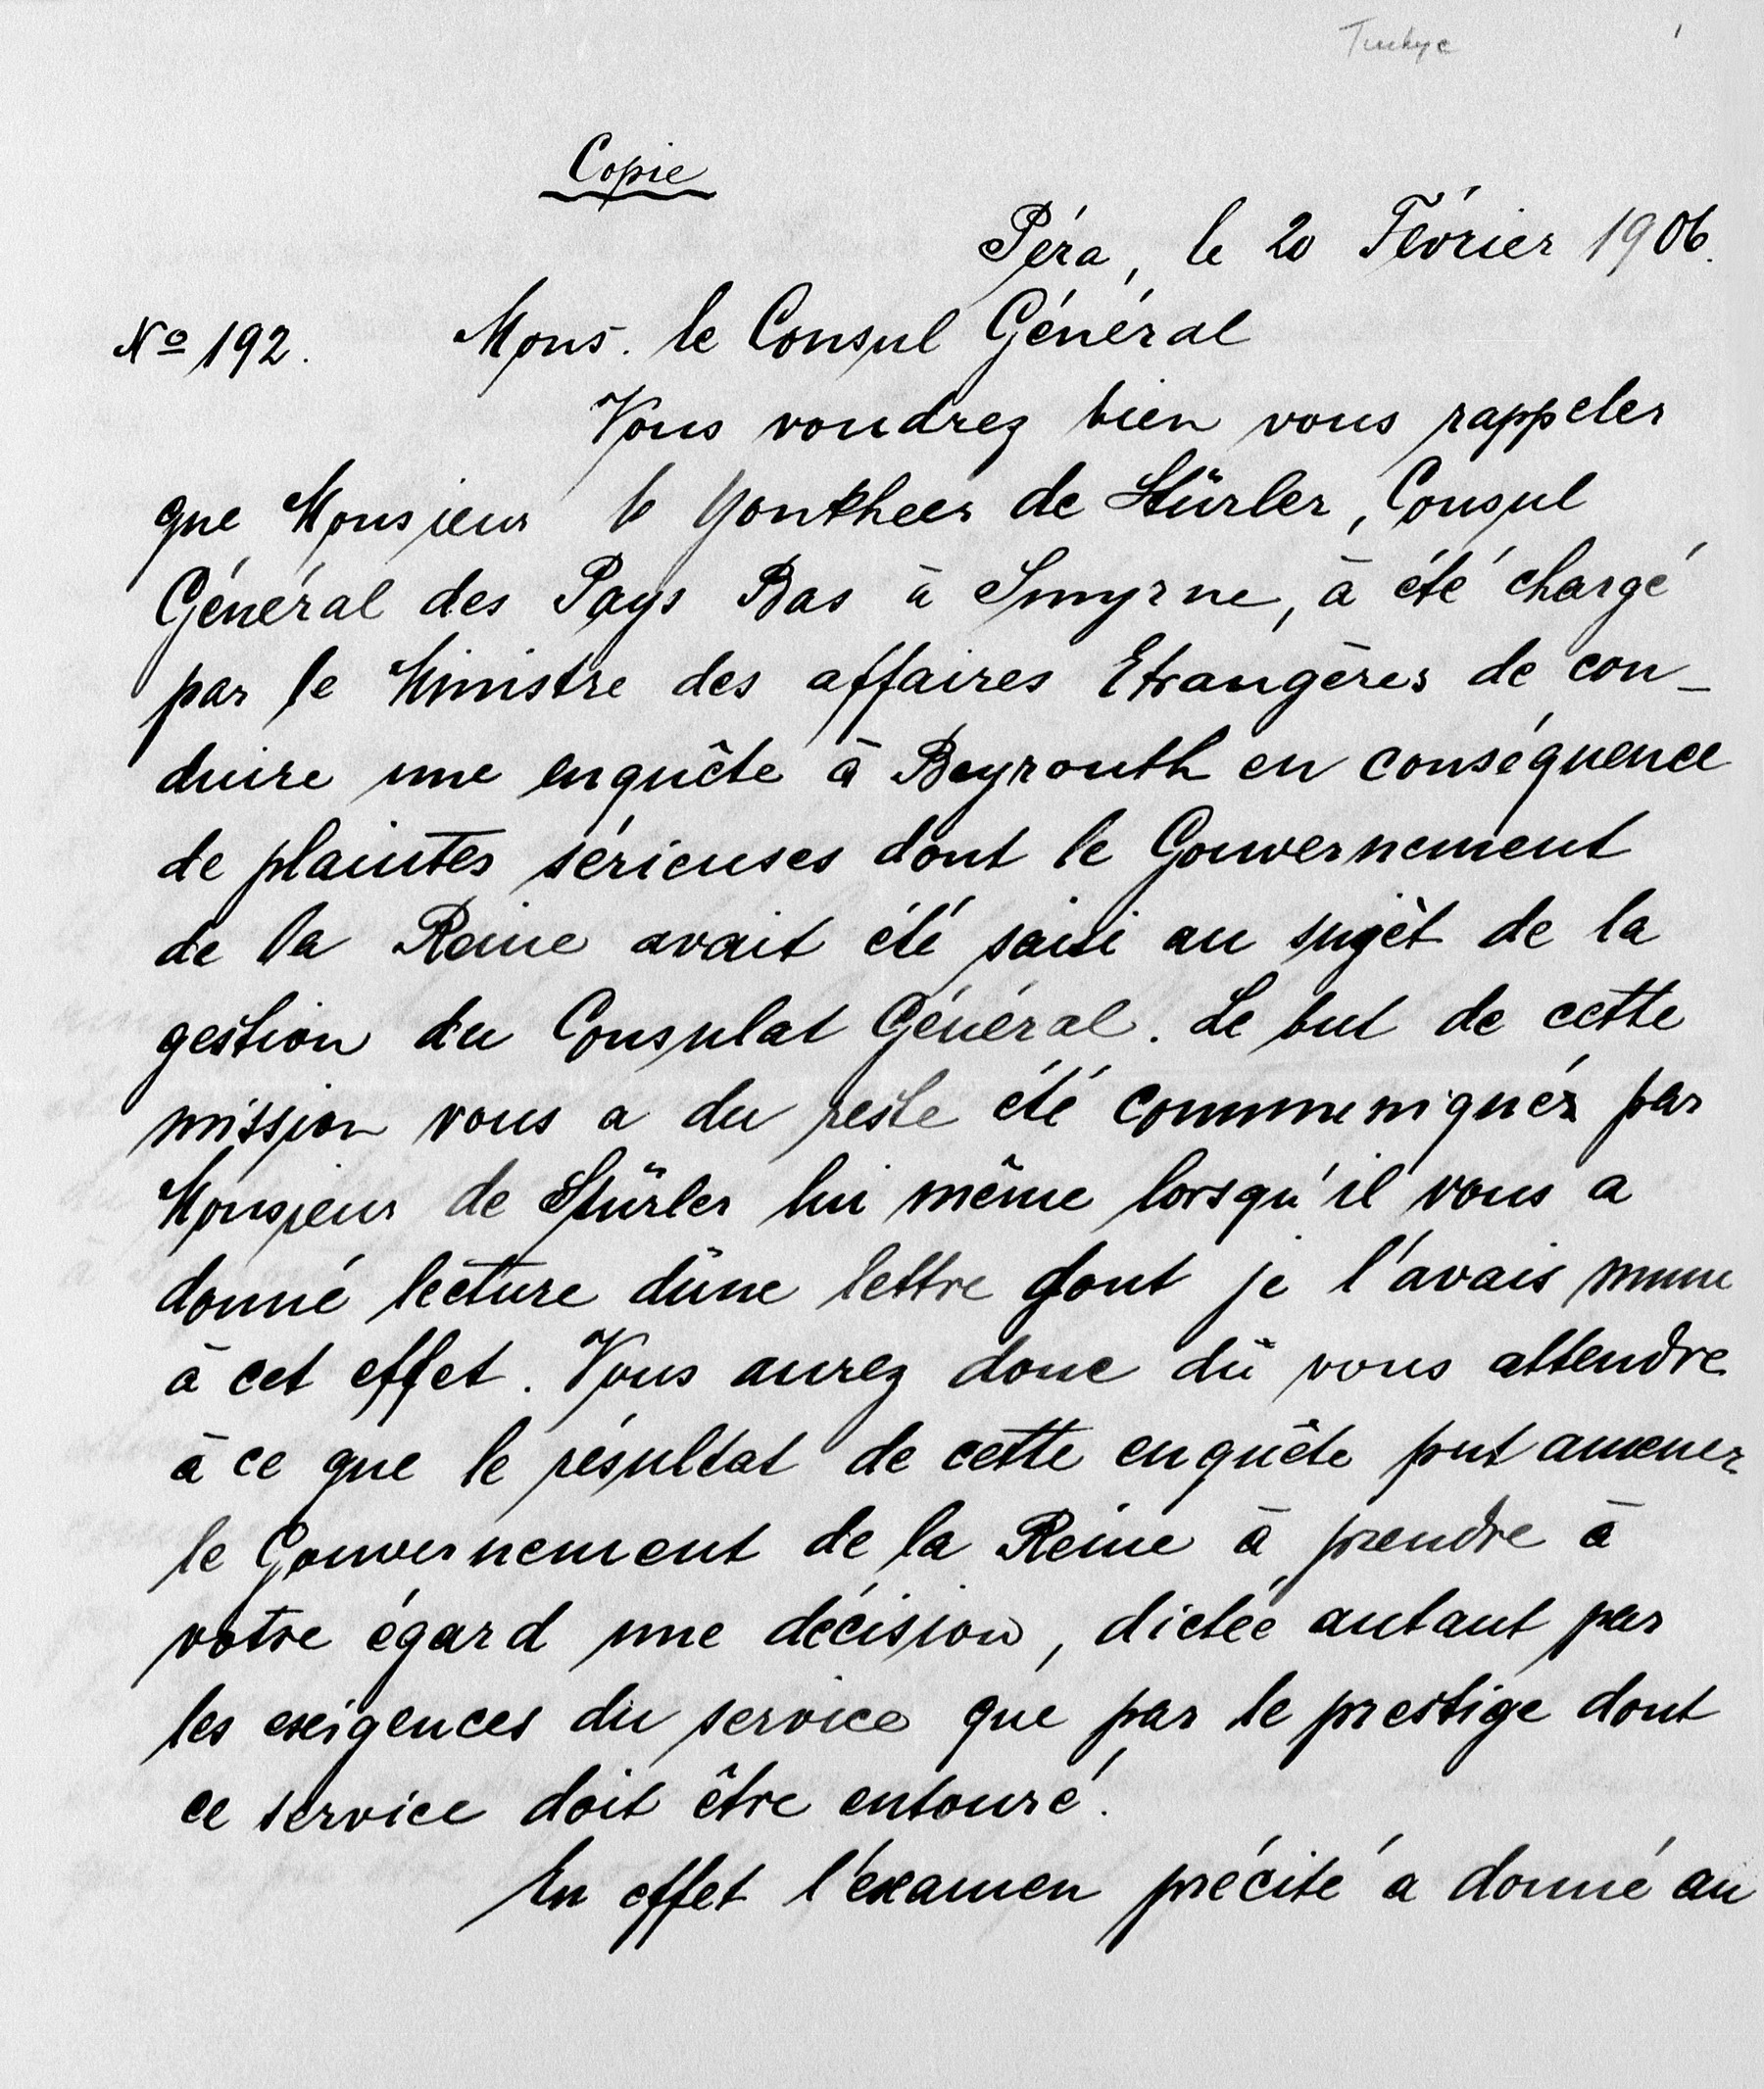 Turkye
Copie
Péra, le 20 Février 1906.
No 192. Mons. le Consul Général
Vous voudrez bien vous rappeler
que Monsieur le Yonkheer de Stürler, Consul
Général des Pays Bas à Smyrne, à été chargé
par le Ministre des affaires Etrangères de con_
duire une enquête à Beyrouth en conséquence
de plaintes sérieuses dont le Gouvernement
de la Reine avait été saisi au sujèt de la
gestion du Consulat Général. Le but de cette
mission vous a du reste été communiqués par
Monsieur de Stürler lui même lorsqu'il vous a
donné lecture d'une lettre dont je l'avais muni
à cet effet. Vous aurez donc dû vous attendre
à ce que le résultat de cette enquête put amener
le Gouvernement de la Reine à prendre à
votre égard une décision, dictée autant par
les exigences du service que par le prestige dont
ce service doit être entouré.
En effet l'examen précité a donné au